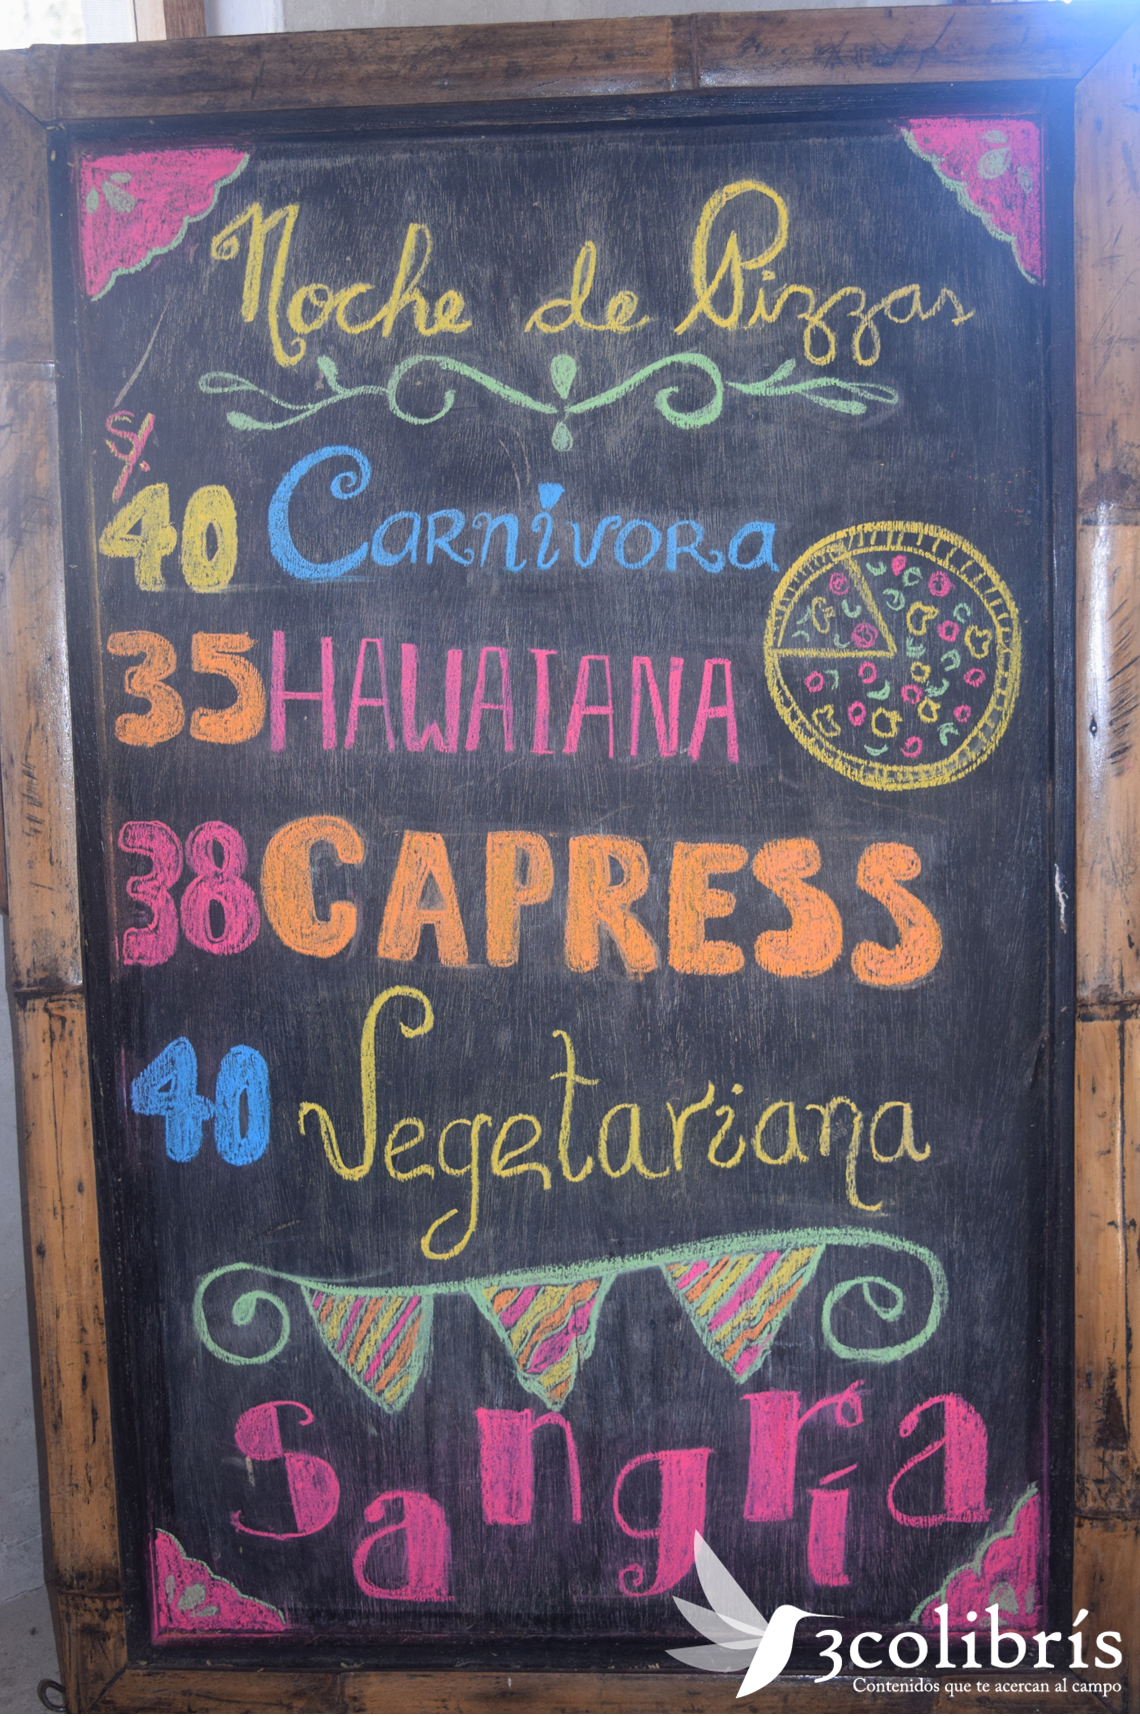 Noche de Pizzas
S/.
40 Carnivora
35 HAWAIANA
38 CAPRESS
40 Vegetariana
Sangría
3colibrís
Contenidos que te acercan al campo